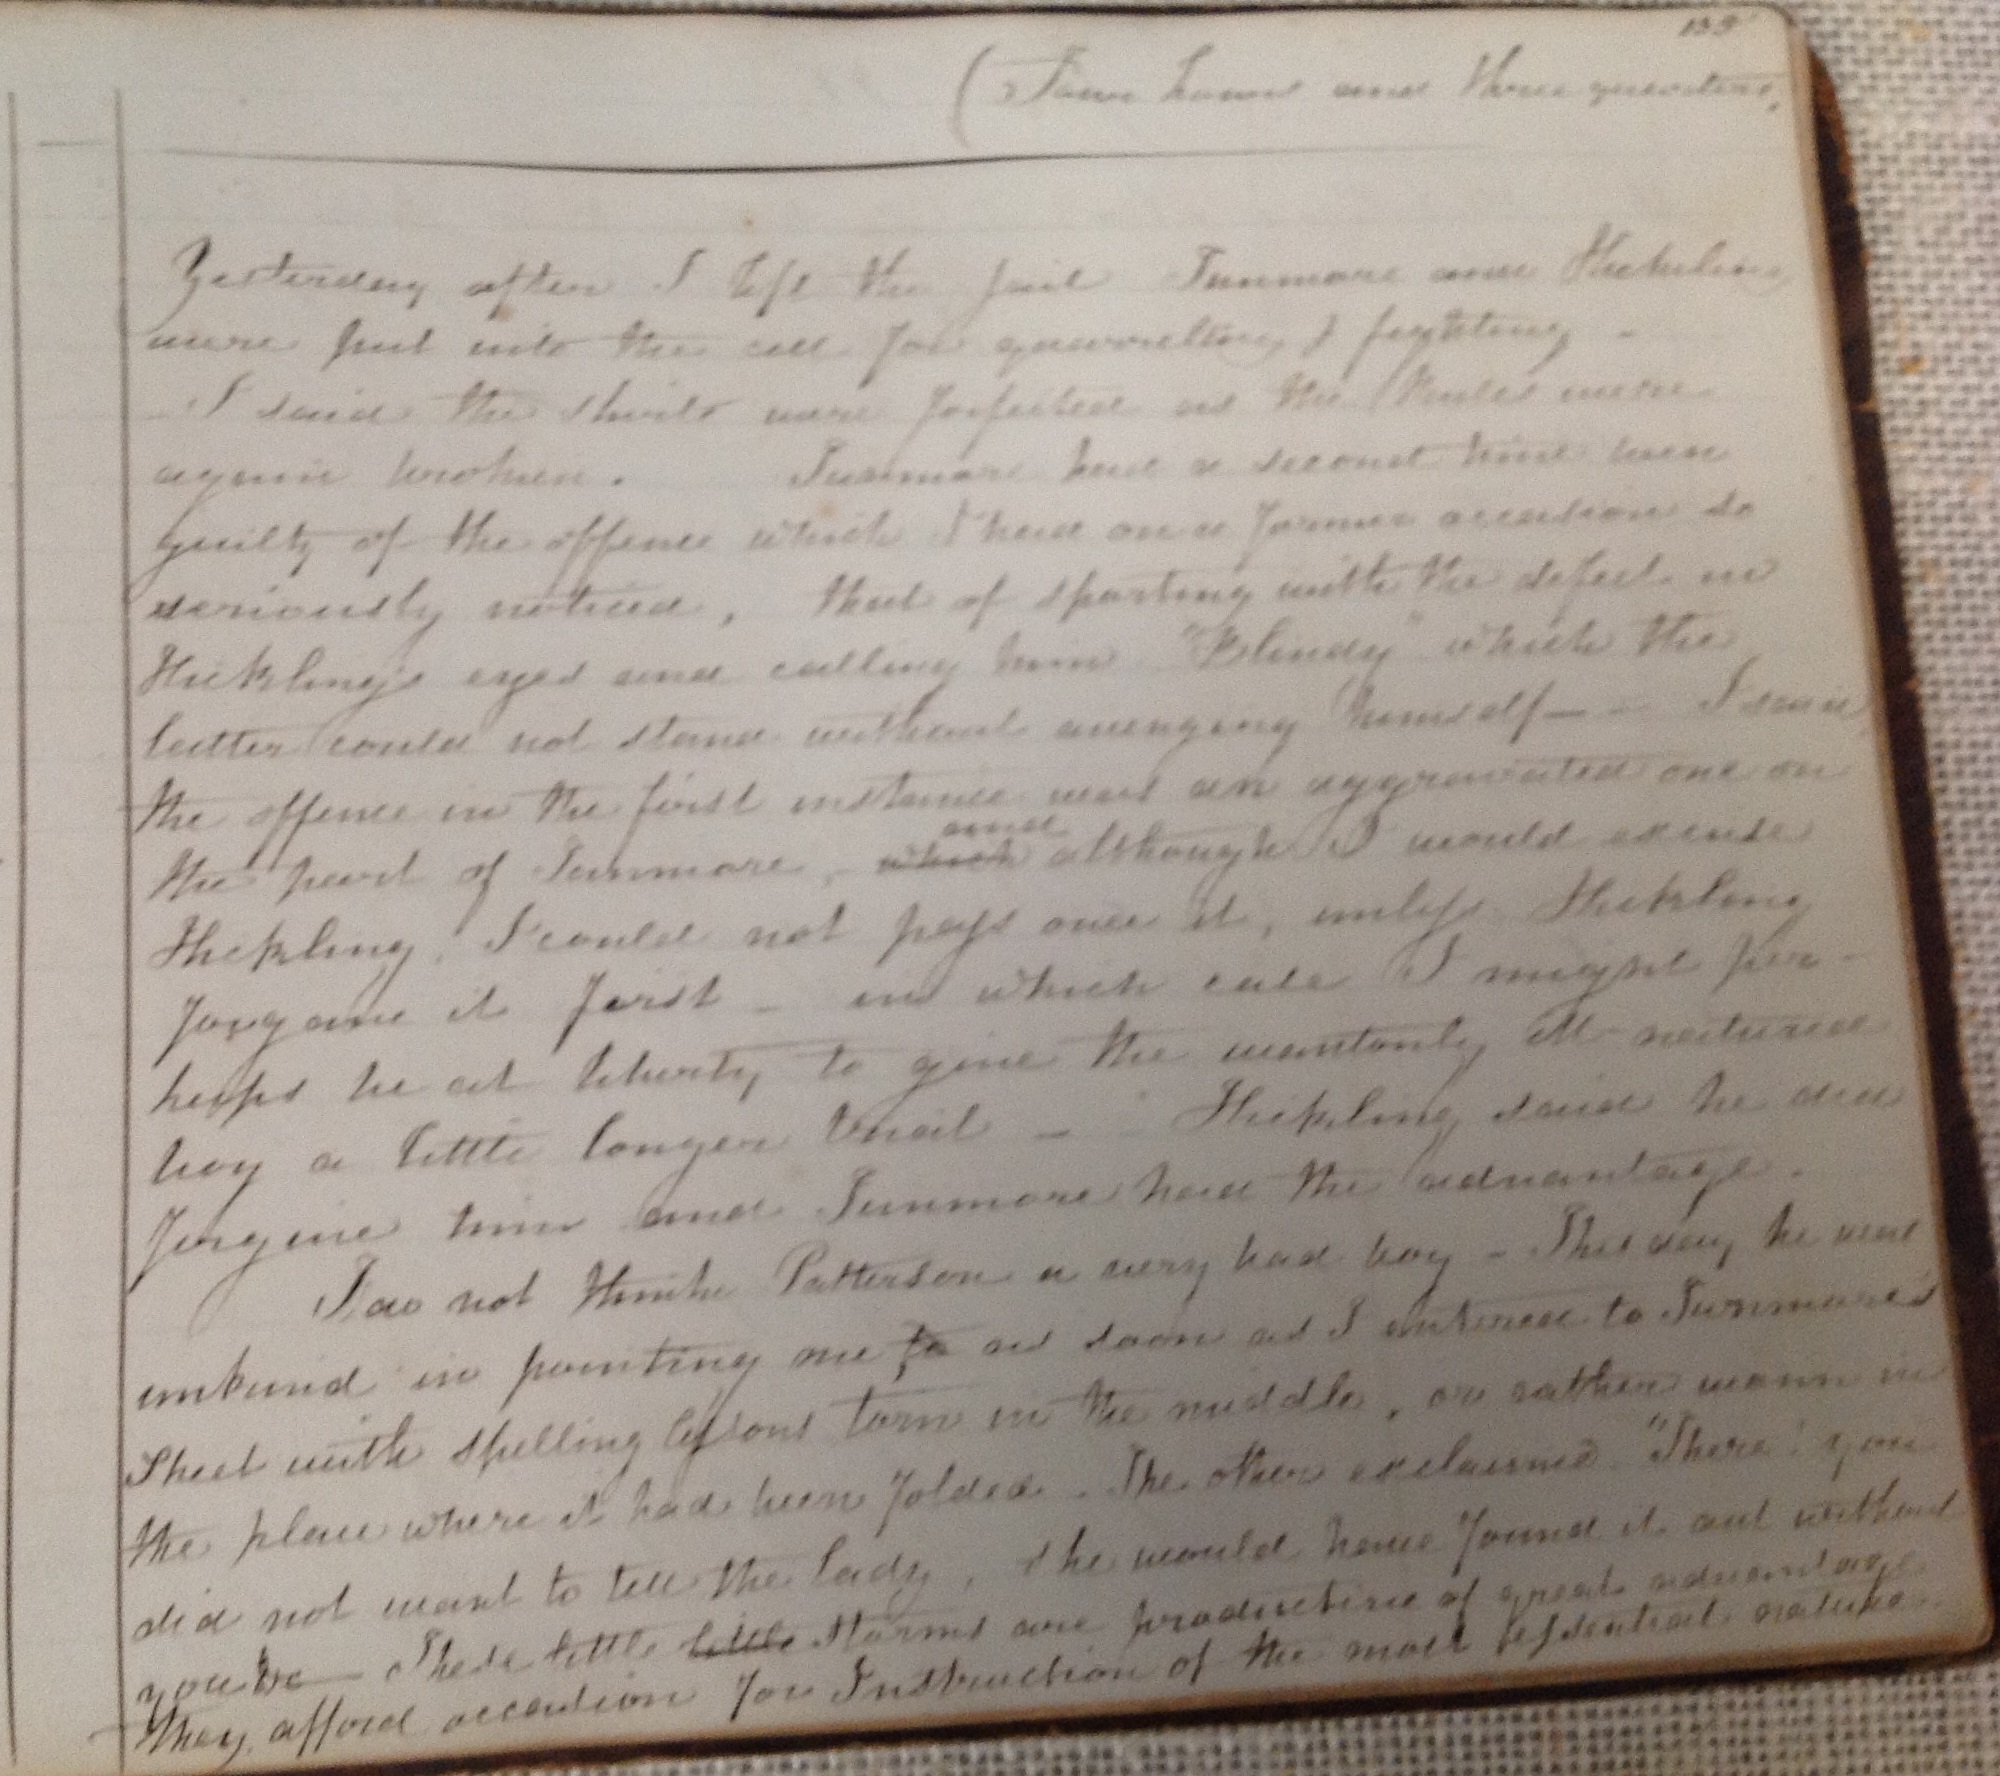 139
(Four hours and three quarters.
Yesterday after I left the jail Tunmore and Hickling
were put into the cell for quarrelling & fighting -
- I said the shirts were forfeited as the Rules were
again broken. Tunmore had a second time been
guilty of the offence which I had on a former occasion so
seriously noticed, that of sporting with the defect in
Hickling's eyes and calling him "Blindy" which the
latter could not stand without avenging himself - - I said
the offence in the first instance was an aggravated one on
the part of Tunmore, which and although I would excuse
Hickling, I could not pass over it, unless Hickling
forgave it first - in which case I might per-
haps be at liberty to give the wantonly ill natured
boy a little longer trial - - Hickling said he did
forgive him and Tunmore had the advantage.
I do not think Patterson a very bad boy - This day he was
unkind in pointing me to as soon as I entered to Tunmore's
Sheet with spelling lessons torn in the middle, or rather worn in
the place where it had been folded. The other exclaimed "There! you
did not want to tell the lady, she would have found it out without
you - These little little storms are productive of great advantage
they afford occasion for Instruction of the most essential nature.